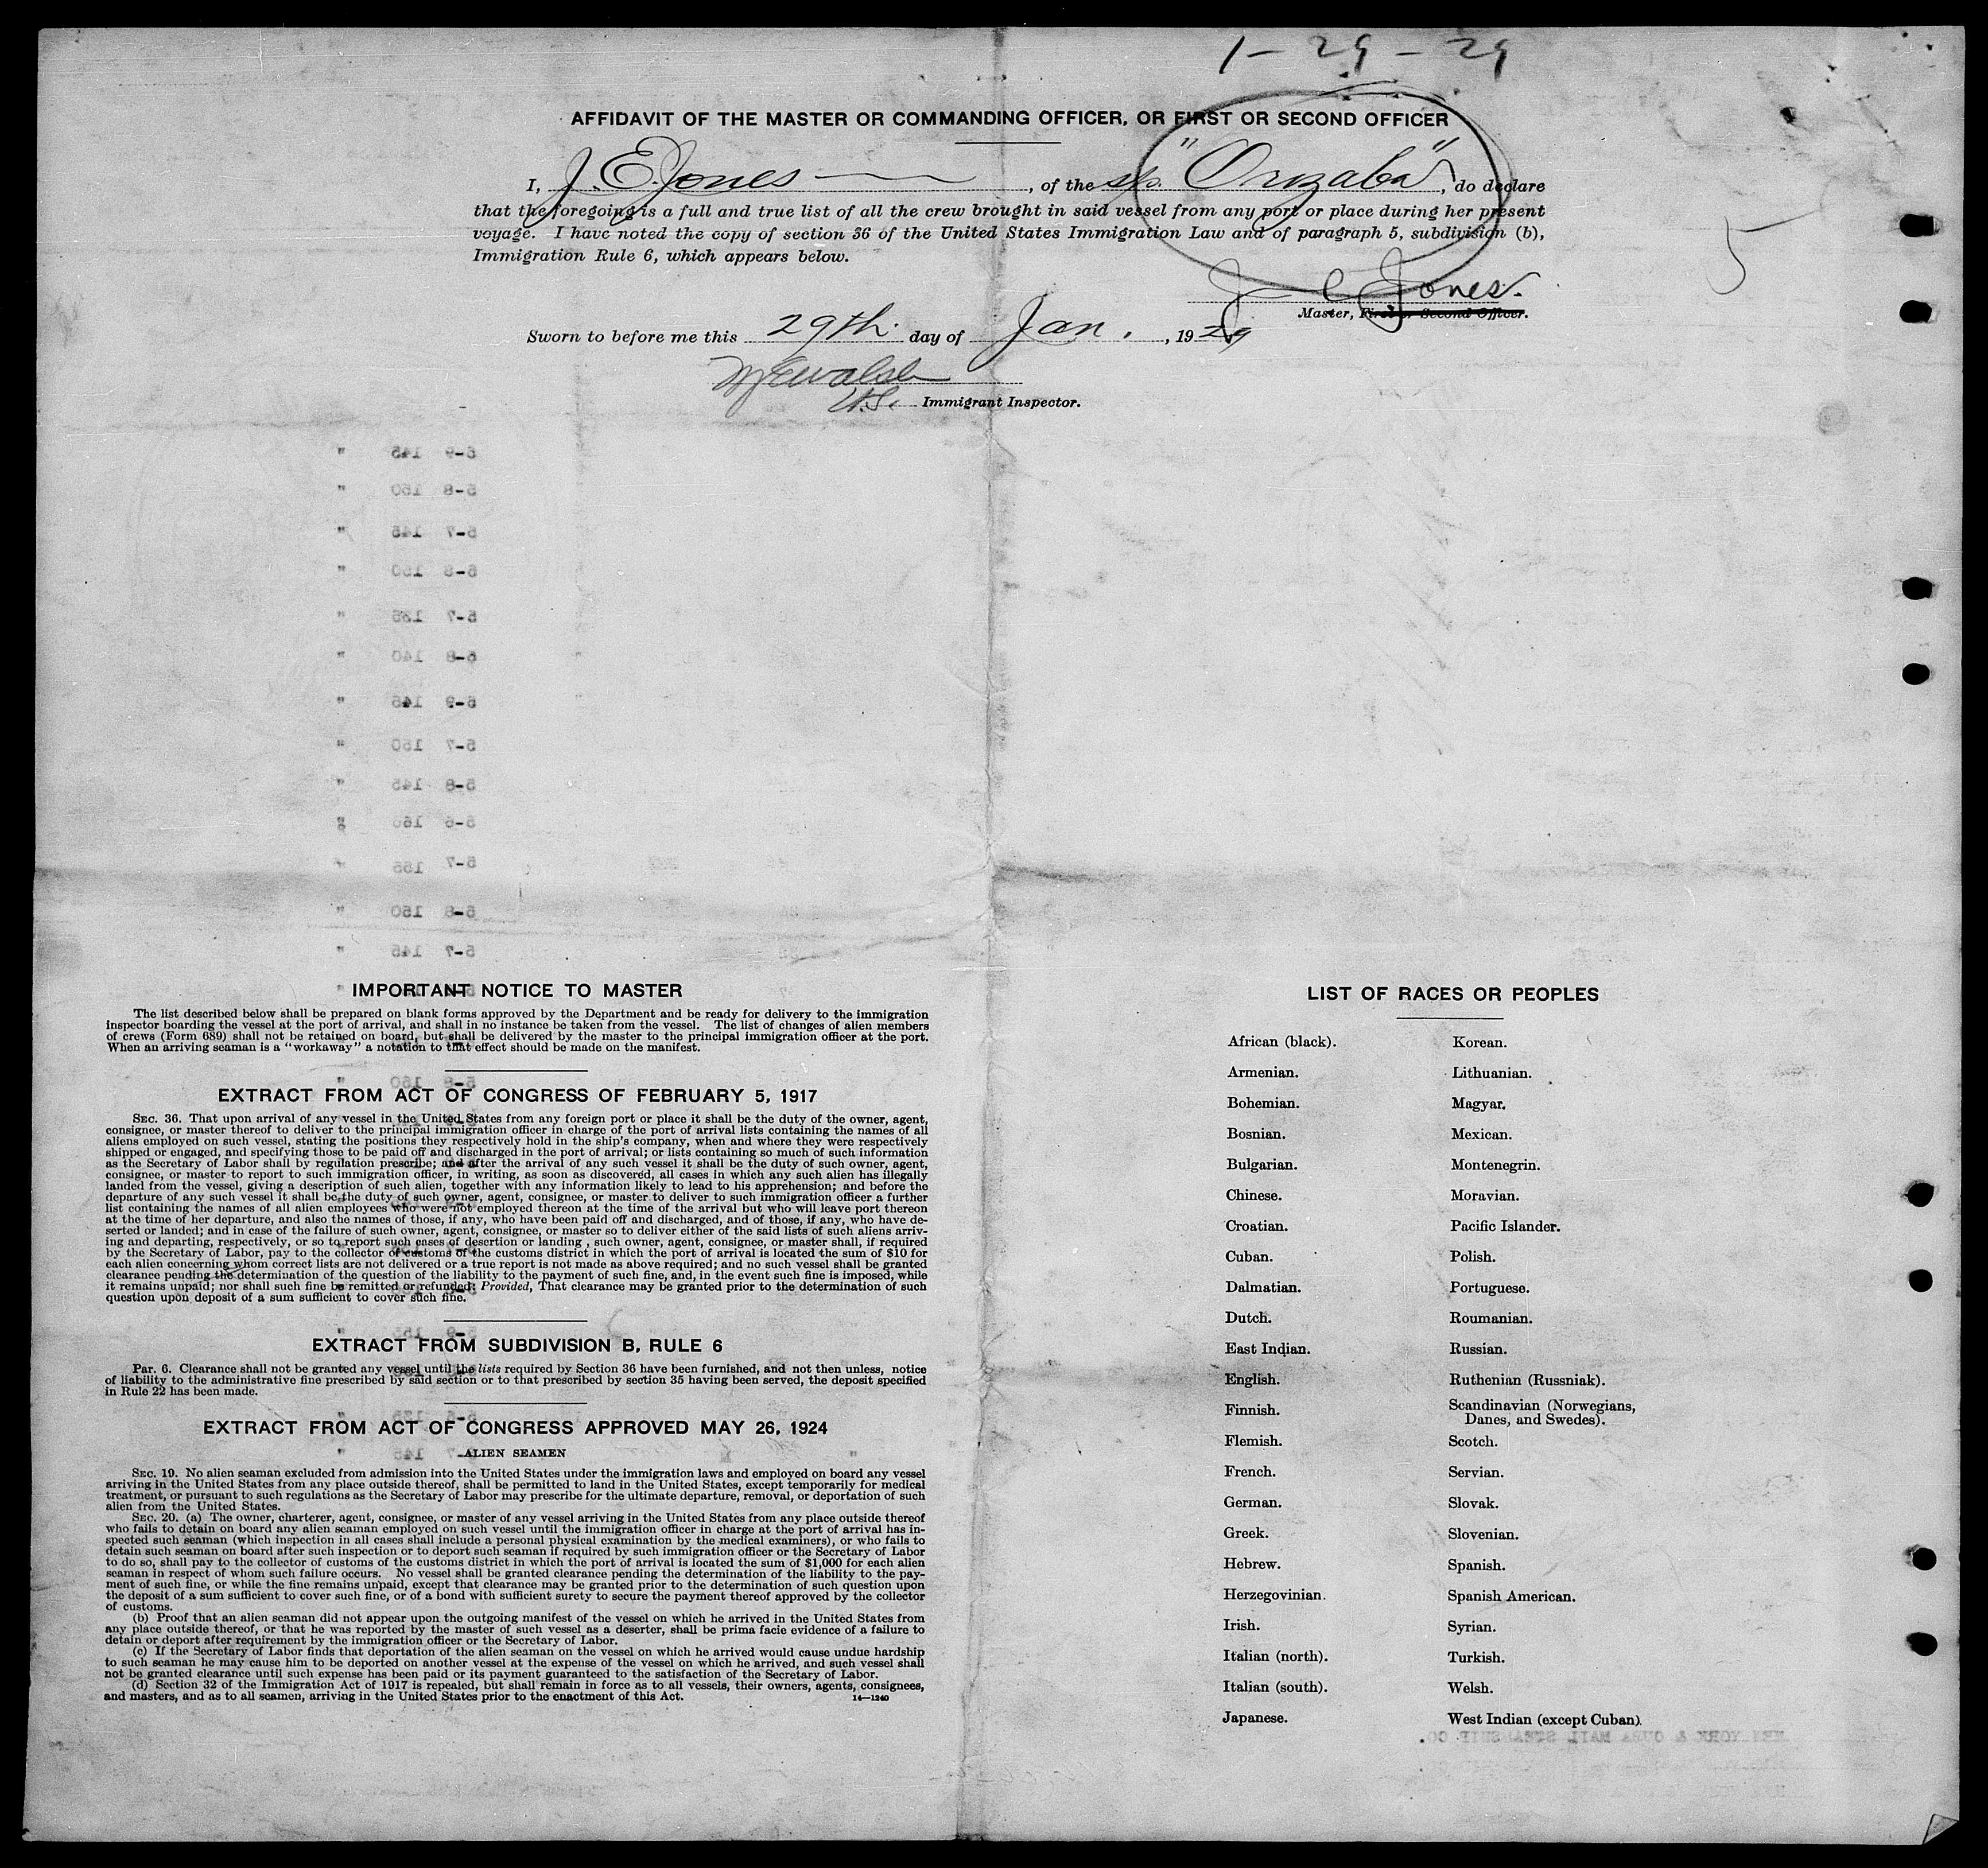 1-29-29
AFFIDAVIT OF THE MASTER OR COMMANDING OFFICER, OR FIRST OR SECOND OFFICER
I, J. E. Jones, of the s/s. "Orizaba", do declare
that the foregoing is a full and true list of all the crew brought in said vessel from any port or place during her present
voyage. I have noted the copy of section 36 of the United States Immigration Law and of paragraph 5, subdivision (b),
Immigration Rule 6, which appears below.
5
J E Jones.
Master, First or Second Officer.
Sworn to before me this 29th. day of Jan., 1929
Immigrant Inspector.
6-9 145 "
5-8 150 "
5-7 145 "
5-7 "
5-8 140 "
5-9 145 "
5-7 150 "
5-8 145 "
5-8 150 "
5-7 145 "
IMPORTANT NOTICE TO MASTER
The list described below shall be prepared on blank forms approved by the Department and be ready for delivery to the immigration
inspector boarding the vessel at the port of arrival, and shall in no instance be taken from the vessel. The list of changes of alien members
of crews (Form 689) shall not be retained on board, but shall be delivered by the master to the principal immigration officer at the port.
When an arriving seaman is a "workaway" a notation to that effect should be made on the manifest.
EXTRACT FROM ACT OF CONGRESS OF FEBRUARY 5, 1917
SEC. 36. That upon arrival of any vessel in the United States from any foreign port or place it shall be the duty of the owner, agent,
consignee, or master thereof to deliver to the principal immigration officer in charge of the port of arrival lists containing the names of all
aliens employed on such vessel, stating the positions they respectively hold in the ship's company, when and where they were respectively
shipped or engaged, and specifying those to be paid off and discharged in the port of arrival; or lists containing so much of such information
as the Secretary of Labor shall by regulation prescribe; and after the arrival of any such vessel it shall be the duty of such owner, agent,
consignee, or master to report to such immigration officer, in writing, as soon as discovered, all cases in which any such alien has illegally
landed from the vessel, giving a description of such alien, together with any information likely to lead to his apprehension; and before the
departure of any such vessel it shall be the duty of such owner, agent, consignee, or master to deliver to such immigration officer a further
list containing the names of all alien employees who were not employed thereon at the time of the arrival but who will leave port thereon
at the time of her departure, and also the names of those, if any, who have been paid off and discharged, and of those, if any, who have de-
serted or landed; and in case of the failure of such owner, agent, consignee, or master so to deliver either of the said lists of such aliens arriv-
ing and departing, respectively, or so to report such cases of desertion or landing, such owner, agent, consignee, or master shall, if required
by the Secretary of Labor, pay to the collector of customs of the customs district in which the port of arrival is located the sum of $10 for
each alien concerning whom correct lists are not delivered or a true report is not made as above required; and no such vessel shall be granted
clearance pending the determination of the question of the liability to the payment of such fine, and, in the event such fine is imposed, while
it remains unpaid; nor shall such fine be remitted or refunded: Provided, That clearance may be granted prior to the determination of such
question upon deposit of a sum sufficient to cover such fine.
EXTRACT FROM SUBDIVISION B, RULE 6
Par. 6. Clearance shall not be granted any vessel until the lists required by Section 36 have been furnished, and not then unless, notice
of liability to the administrative fine prescribed by said section or to that prescribed by section 35 having been served, the deposit specified
in Rule 22 has been made.
EXTRACT FROM ACT OF CONGRESS APPROVED MAY 26, 1924
ALIEN SEAMEN
SEC. 19. No alien seaman excluded from admission into the United States under the immigration laws and employed on board any vessel
arriving in the United States from any place outside thereof, shall be permitted to land in the United States, except temporarily for medical
treatment, or pursuant to such regulations as the Secretary of Labor may prescribe for the ultimate departure, removal, or deportation of such
alien from the United States.
SEC. 20. (a) The owner, charterer, agent, consignee, or master of any vessel arriving in the United States from any place outside thereof
who fails to detain on board any alien seaman employed on such vessel until the immigration officer in charge at the port of arrival has in-
spected such seaman (which inspection in all cases shall include a personal physical examination by the medical examiners), or who fails to
detain such seaman on board after such inspection or to deport such seaman if required by such immigration officer or the Secretary of Labor
to do so, shall pay to the collector of customs of the customs district in which the port of arrival is located the sum of $1,000 for each alien
seaman in respect of whom such failure occurs. No vessel shall be granted clearance pending the determination of the liability to the pay-
ment of such fine, or while the fine remains unpaid, except that clearance may be granted prior to the determination of such question upon
the deposit of a sum sufficient to cover such fine, or of a bond with sufficient surety to secure the payment thereof approved by the collector
of customs.
(b) Proof that an alien seaman did not appear upon the outgoing manifest of the vessel on which he arrived in the United States from
any place outside thereof, or that he was reported by the master of such vessel as a deserter, shall be prima facie evidence of a failure to
detain or deport after requirement by the immigration officer or the Secretary of Labor.
(c) If the Secretary of Labor finds that deportation of the alien seaman on the vessel on which he arrived would cause undue hardship
to such seaman he may cause him to be deported on another vessel at the expense of the vessel on which he arrived, and such vessel shall
not be granted clearance until such expense has been paid or its payment guaranteed to the satisfaction of the Secretary of Labor.
(d) Section 32 of the Immigration Act of 1917 is repealed, but shall remain in force as to all vessels, their owners, agents, consignees,
and masters, and as to all seamen, arriving in the United States prior to the enactment of this Act.
14—1240
LIST OF RACES OR PEOPLES
African (black).
Armenian.
Bohemian.
Bosnian.
Bulgarian.
Chinese.
Croatian.
Cuban.
Dalmatian.
Dutch.
East Indian.
English.
Finnish.
Flemish.
French.
German.
Greek.
Hebrew.
Herzegovinian.
Irish.
Italian (north).
Italian (south).
Japanese.
Korean.
Lithuanian.
Magyar.
Mexican.
Montenegrin.
Moravian.
Pacific Islander.
Polish.
Portuguese.
Roumanian.
Russian.
Ruthenian (Russniak).
Scandinavian (Norwegians,
Danes, and Swedes).
Scotch.
Servian.
Slovak.
Slovenian.
Spanish.
Spanish American.
Syrian.
Turkish.
Welsh.
West Indian (except Cuban).
NEW YORK & CUBA MAIL STEAMSHIP CO.